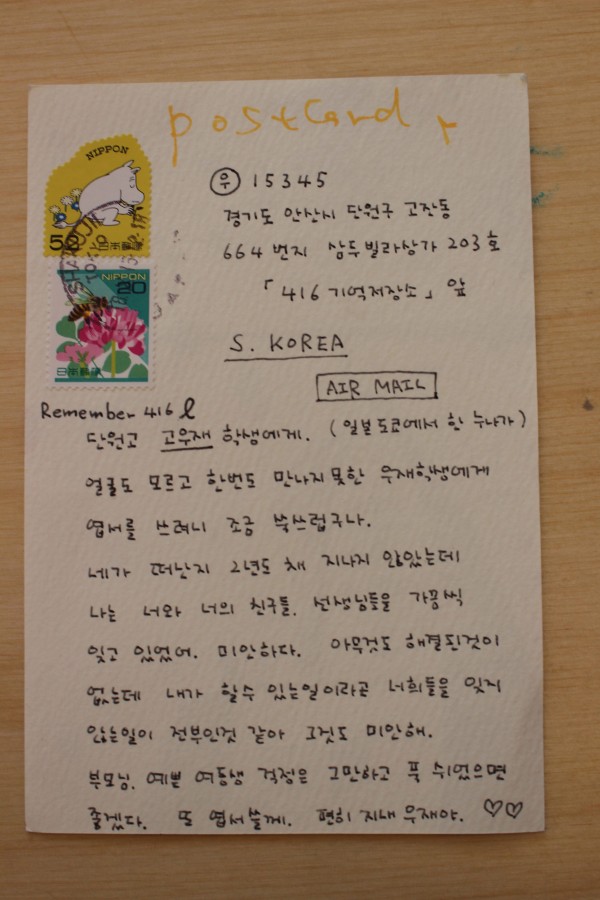 postcard
NIPPON
52 日本郵便
NIPPON
20
日本郵便
우 15345
경기도 안산시 단원구 고잔동
664 번지 삼두빌라상가 203호
「416 기억저장소」 앞
S. KOREA
AIR MAIL
Remember 416
단원고 고우재 학생에게. (일본도쿄에서 한 누나가)
얼굴도 모르고 한번도 만나지 못한 우재학생에게
엽서를 쓰려니 조금 쑥쓰럽구나.
네가 떠난지 2년도 채 지나지 않았는데
나는 너와 너의 친구들. 선생님들을 가끔씩
잊고 있었어. 미안하다. 아무것도 해결된것이
없는데 내가 할수 있는일이라곤 너희들을 잊지
않는일이 전부인것 같아 그것도 미안해.
부모님. 예쁜 여동생 걱정은 그만하고 푹 쉬었으면
좋겠다. 또 엽서쓸께. 편히 지내 우재야. ♡♡